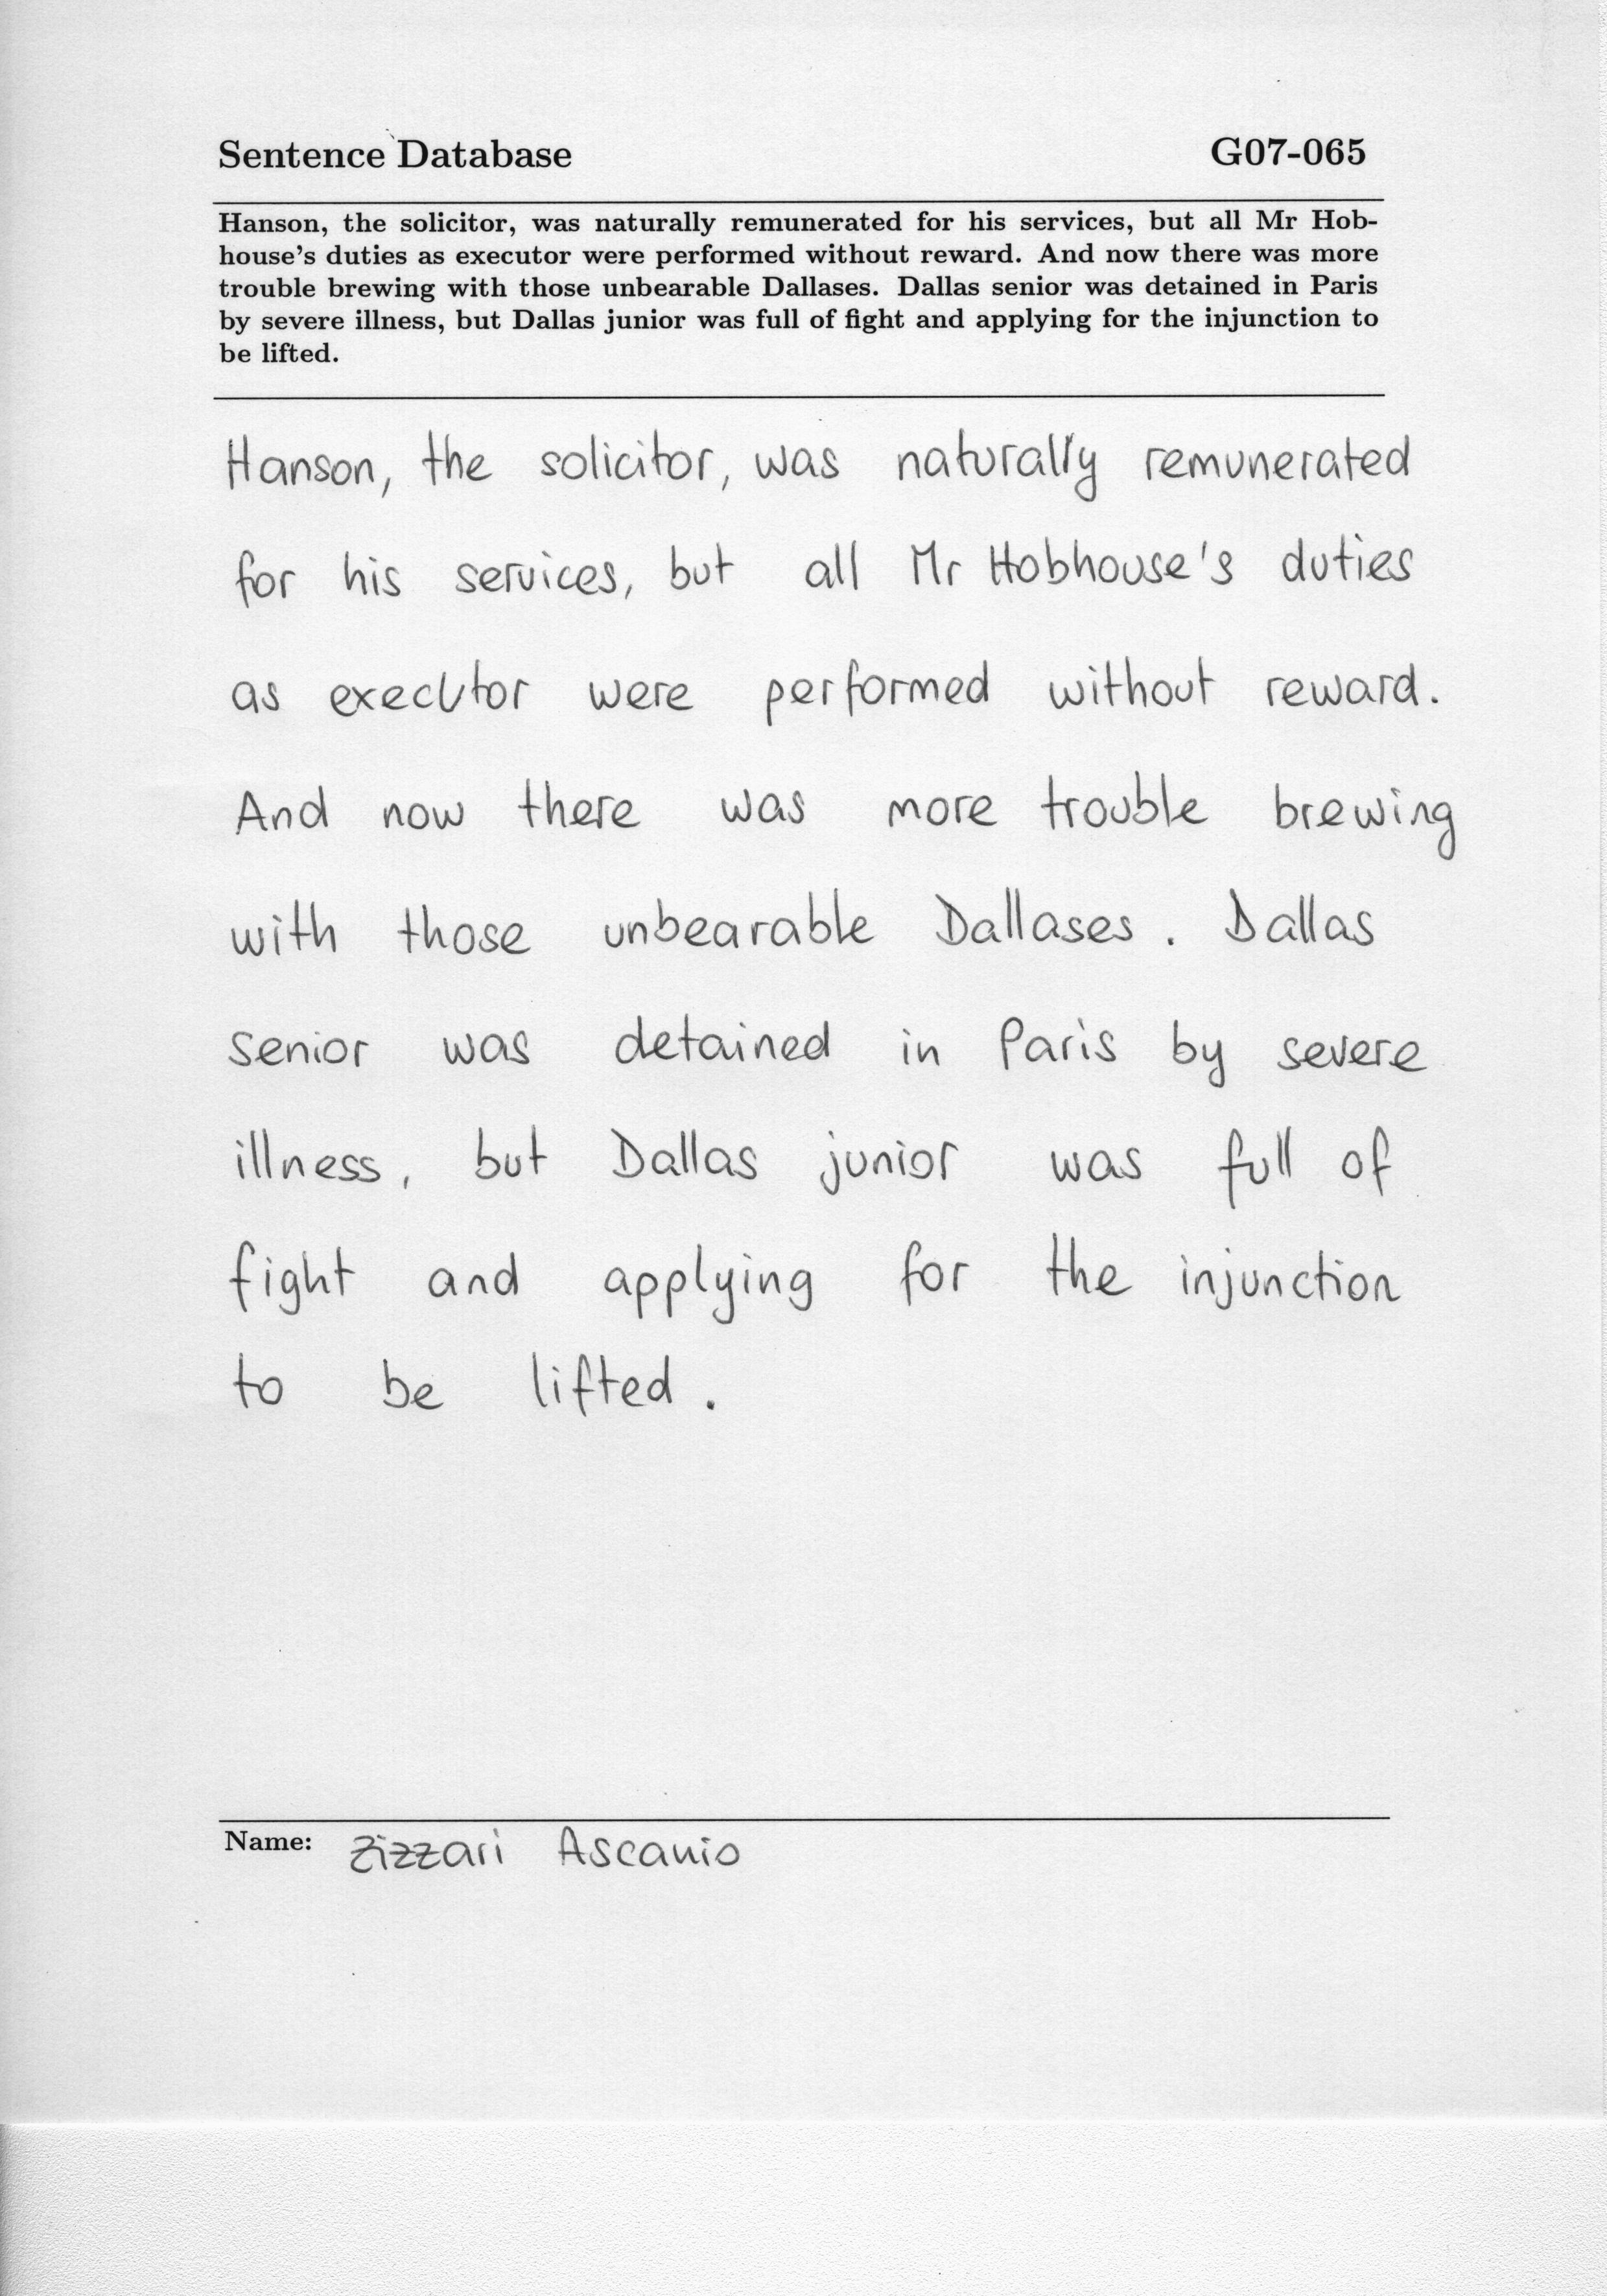 Sentence Database G07-065
Hanson, the solicitor, was naturally remunerated for his services, but all Mr Hob-
house's duties as executor were performed without reward. And now there was more
trouble brewing with those unbearable Dallases. Dallas senior was detained in Paris
by severe illness, but Dallas junior was full of fight and applying for the injunction to
be lifted.
Hanson, the solicitor, was naturally remunerated
for his services, but all Mr Hobhouse's duties
as executor were performed without reward.
And now there was more trouble brewing
with those unbearable Dallases. Dallas
senior was detained in Paris by severe
illness, but Dallas junior was full of
fight and applying for the injunction
to be lifted.
Name: Zizzari Ascanio